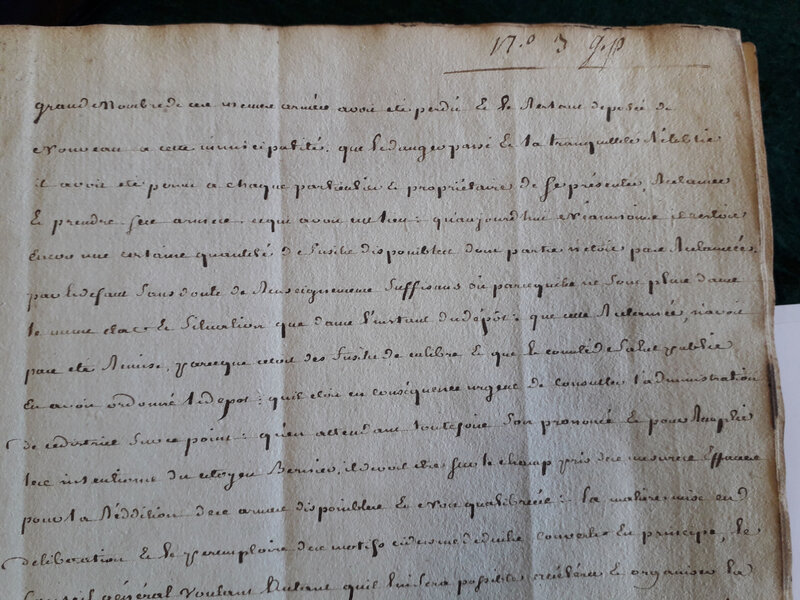 N.o 3 
grand Nombre de ces memes armées avoit eté perdû & le Restant deposée de
Nouveau a cette municipalité; que le danger passé & la tranquillité Rétablie
il avoit eté permi a chaque particulier & propriétaire de se présenter, Reclamer
& prendre ses armes, ce qui avoit eu lieu: qu'aujourd'hui Néanmoins il restoit
Encor une certaine quantité de fusils disponibles dont partie n'etoit pas Reclamées,
par le defaut sans doute de Renseignemens suffisans ou parcequ'ils ne sont plus dans
le meme etat & situation que dans l'instant du dépôt: que cette Reclamée, n'avoit
pas eté Remise, parceque c'etoit des fusils de calibre & que le comité de salut public
En avoit ordonné le depot: qu'il etoit en conséquence urgent de consulter l'administration
de ce district sur ce point: qu'en attendant toutefois son prononcé & pour Remplir
les intentions du citoyen il devoit etre sur le champ pris des mesures Efficaces
pour la Réddition des armes disponibles & Non qualibrées: la matiere mise en
deliberation & le des motifs cidessus déduits convertis En principe, le
Conseil général voulant autant qu'il lui sera possible & organiser la